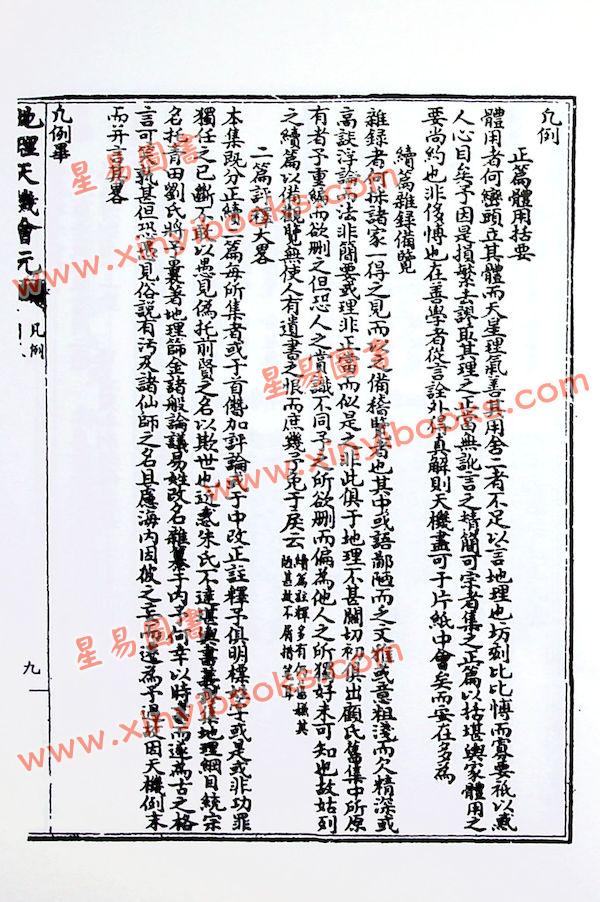 凡例
正篇體用括要
體用者何巒頭立其體而天星理氣善其用舍二者不足以言地理也坊刻比比博而寡要祇以惑
人心目矣予因是損繁去謬取其理之正當無訛言之精簡可宗者集之正篇以括堪輿家體用之
要尚約也非侈博也在善學者從言詮外得真解則天機盡可于片紙中會矣而奚在多為
續篇雜錄備覽
雜錄者何採諸家一得之見而以之備稽覽者也其中或語鄙陋而乏文雅或意粗淺而欠精深或
高談浮論而法非簡要或理非正當而似是之非此俱于地理不甚關切初俱出顧氏舊集中所原
有者予重編而欲刪之但恐人之賞識不同予之所欲刪而偏為他人之所獨好未可知也故姑列
之續篇以備觀覽無使人有遺書之恨而庶幾予免于戾云
續篇註釋多有
陋甚故不屑措筆耳
二篇評釋大畧
本集既分正續二篇每所集者或于首僭加評論或于中改正註釋予俱明標
獨任之已斷不敢以愚見偽托前賢之名以欺世也近惑朱氏不達堪輿書義 集地理綱目統宗
名托青田劉氏將予曩著地理 諸般論議易姓改名雜 于內予何幸以時 而遂為古之格
言可笑孰甚但恐愚見俗說有污及諸仙師之名且慮海內因彼之妄而遂為予過故因天機例末
而并言其畧
凡例畢
地理天機會元
凡例
九
星易圖書
www.xinyibooks.com
星易圖書
www.xinyibooks.com
星易圖書
www.xinyibooks.com
星易圖書
www.xinyibooks.com